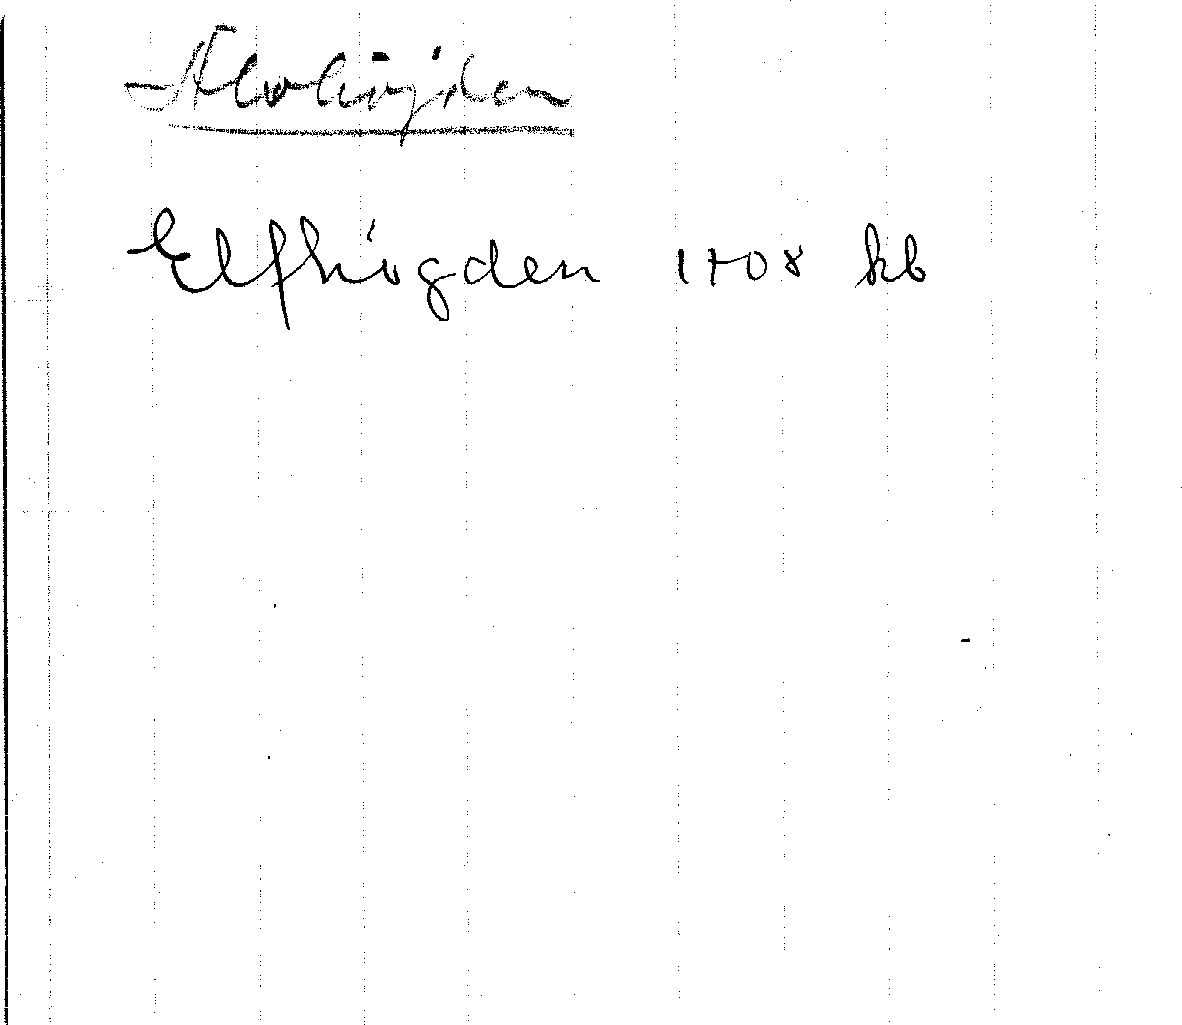 Älvhöjden
Elfhögden 1708 kb